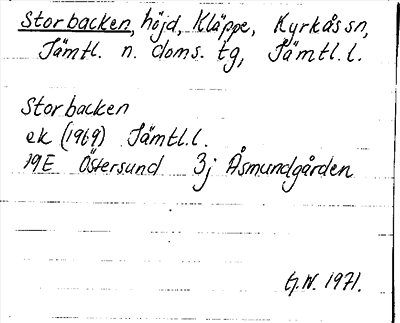 Storbacken, höjd, Kläppe, Kyrkås sn,
Jämtl. n. doms. tg, Jämtl. l.
Storbacken
ek (1969) Jämtl. l.
19E Östersund 3j Åsmundgården
G.W. 1971.